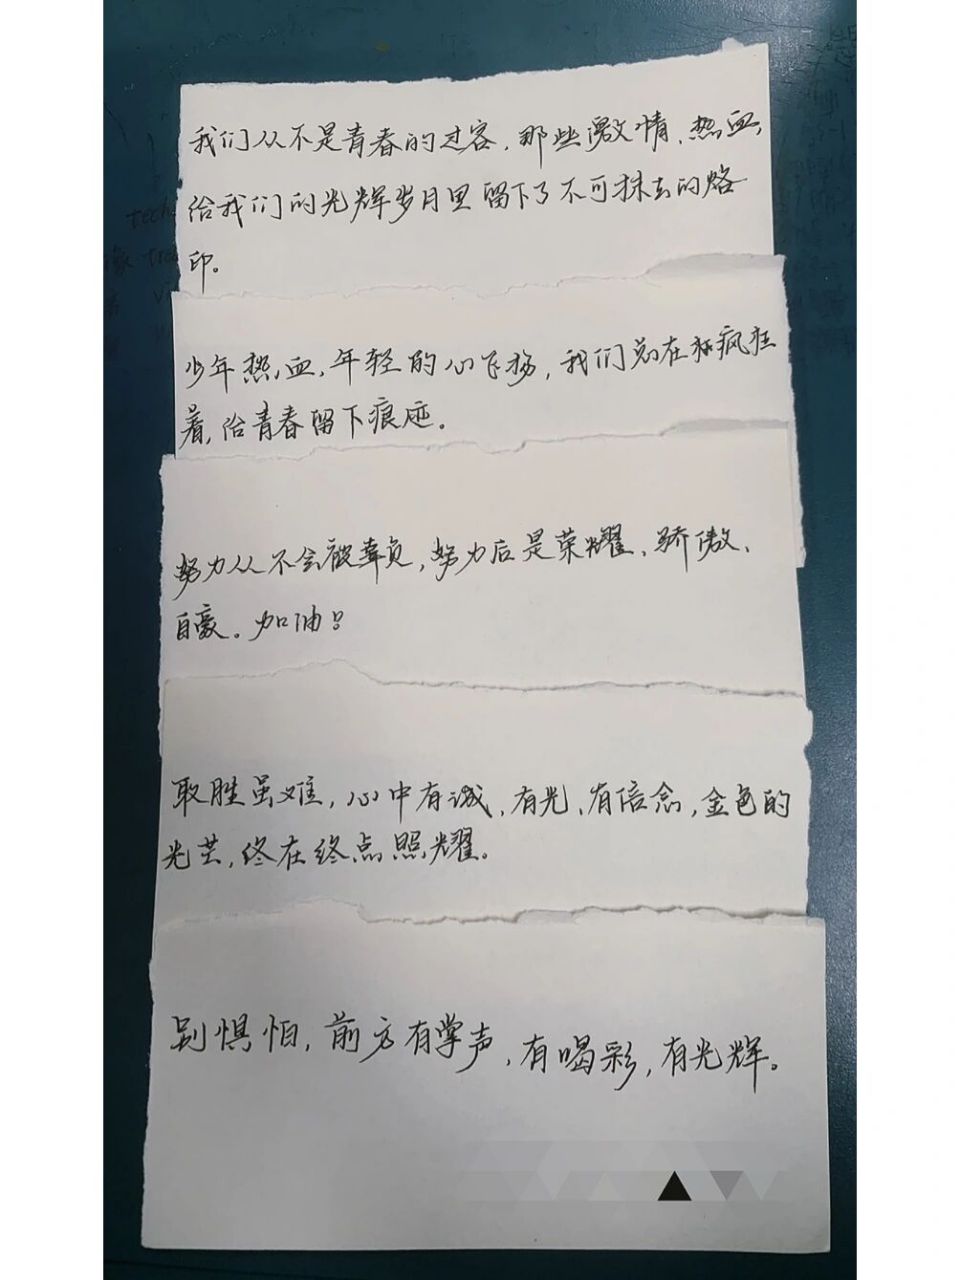 我们从不是青春的过客，那些激情、热血，
给我们的光辉岁月里留下了不可抹去的烙
印。
少年热血，年轻的心飞扬，我们总在疯狂
着，给青春留下痕迹。
努力从不会被辜负，努力后是荣耀、骄傲、
自豪。加油！
取胜虽难，心中有诚、有光、有信念，金色的
光芒，终在终点照耀。
别惧怕，前方有掌声，有喝彩，有光辉。